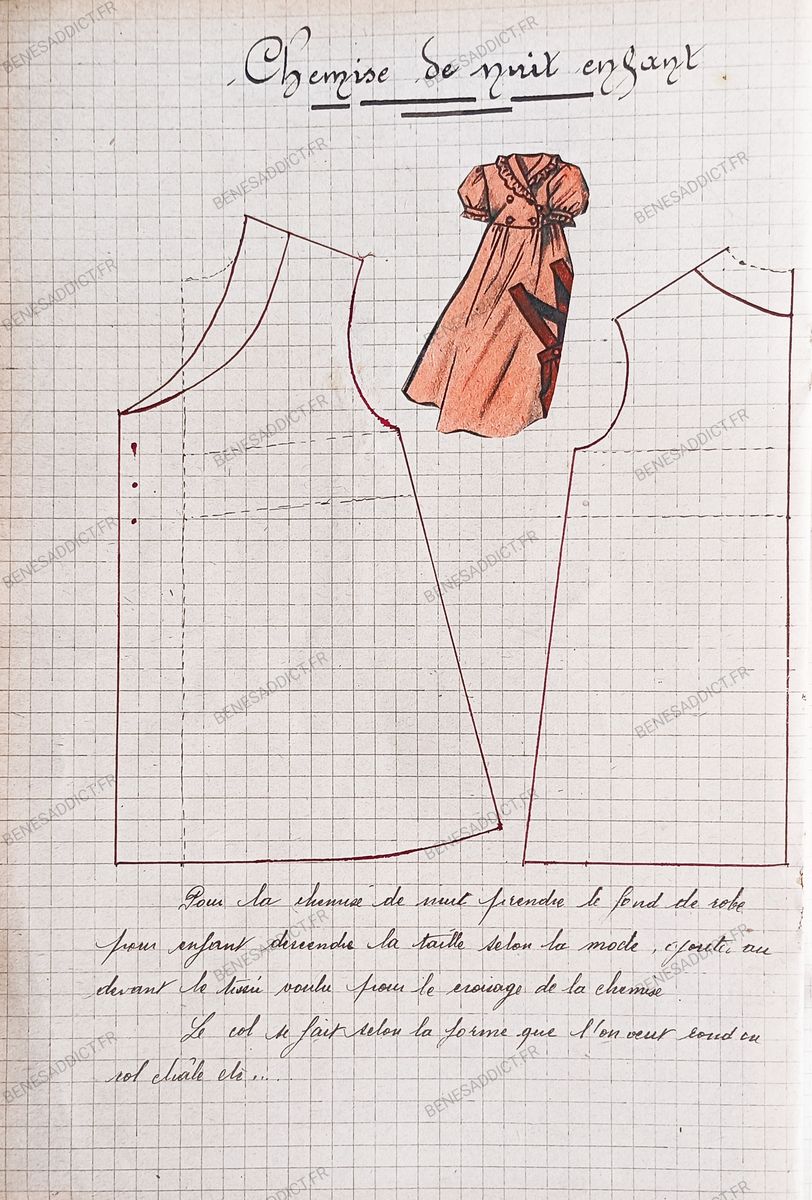 Chemise de nuit enfant
Pour la chemise de nuit prendre le fond de robe
pour enfant descendre la taille selon la mode, ajouter au
devant le voulu pour le croisage de la chemise
Le col se fait selon la forme que l'on veut rond ou
col châle etc...
BENESADDICT.FR